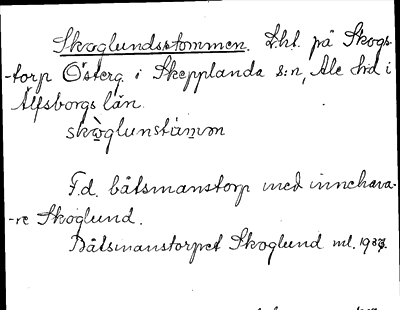 Skoglundsstommen. Lht. på Skogs-
-torp Österg. i Skepplanda s:n, Ale hd i
Älfsborgs län.
skòglunstàmm
F.d. båtsmanstorp med innehava-
-re Skoglund.
Båtsmanstorpet Skoglund ml.